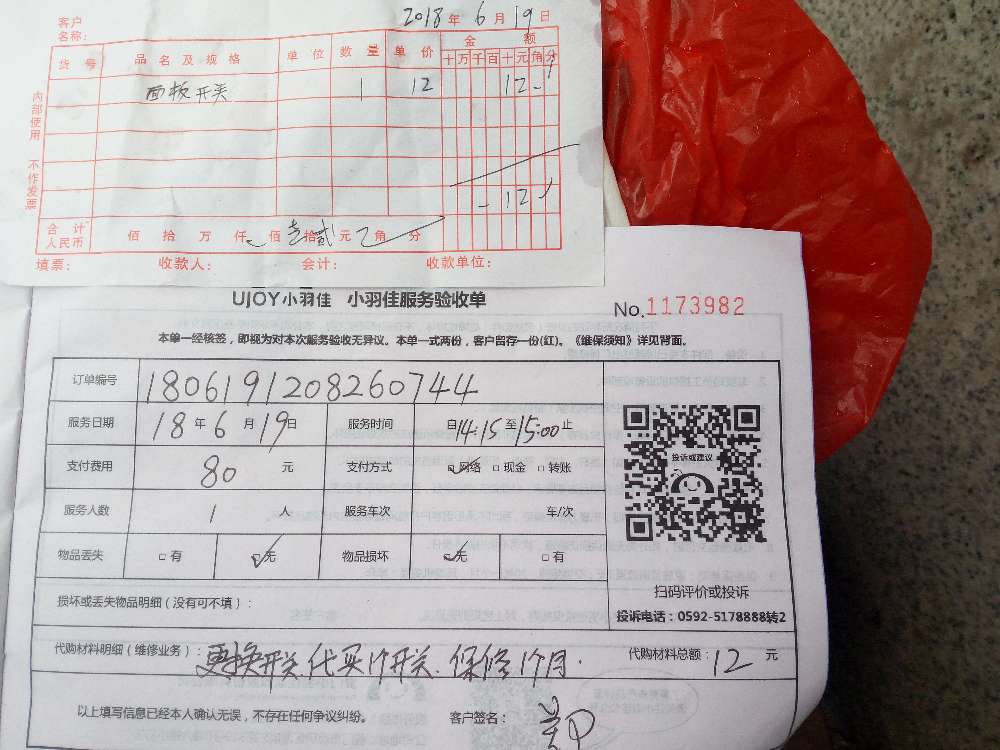 客户名称： 2018年6月19日
货号 品名及规格 单位 数量 单价 金额
十万千百十元角分
面板开关 1 12 12-
-12-
合计人民币 佰拾万仟佰壹拾贰元角分
填票： 收款人： 会计： 收款单位：
内部使用 不作发票
UJOY小羽佳 小羽佳服务验收单
No.1173982
本单一经核签，即视为对本次服务验收无异议。本单一式两份，客户留存一份(红)。《维保须知》详见背面。
订单编号 180619120826074４
服务日期 18年6月19日 服务时间 自14:15至15:00止
支付费用 80元 支付方式 网络 现金 转账
服务人数 1人 服务车次 车/次
物品丢失 有 无 物品损坏 无 有
投诉或建议
扫码评价或投诉
投诉电话：0592-5178888转2
损坏或丢失物品明细（没有可不填）：
代购材料明细（维修业务）：更换开关.代买1个开关.保修1个月. 代购材料总额：12元
以上填写信息已经本人确认无误，不存在任何争议纠纷。 客户签名：